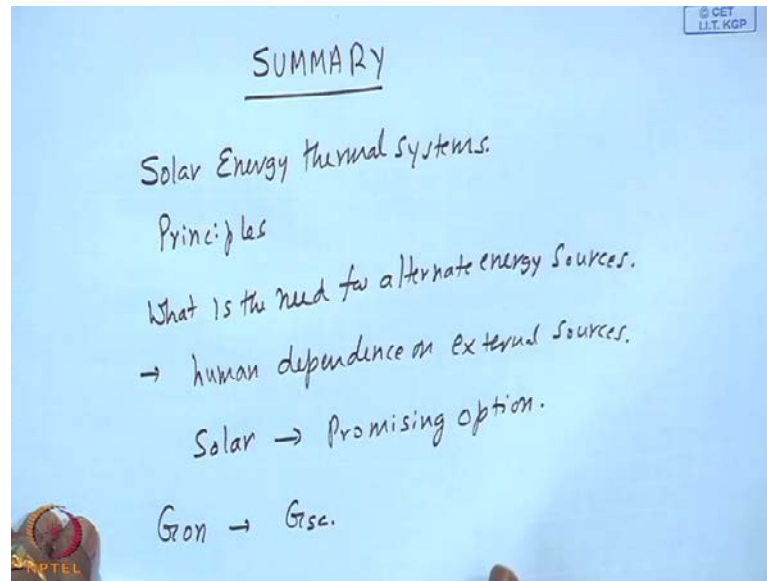 © CET
I.I.T. KGP
SUMMARY
Solar Energy thermal systems.
Principles
What is the need for alternate energy sources.
→ human dependence on external sources.
Solar → Promising option.
Gon → Gsc.
NPTEL